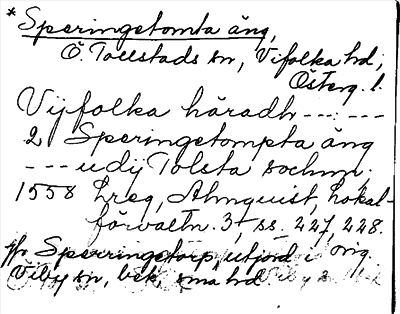 * Speringetomta äng,
Ö. Tollstads sn, Vifolka hd,
Österg. l.
Vijfolka häradh --- ---
2 Speringetompta äng
--- udij Tolsta sochnn.
1558 Lreg, Almquist, Lokal-
förvaltn. 3, ss. 227, 228.
jfr Sperringetorp, utjord i orig.
Viby sn, bek, sma hd